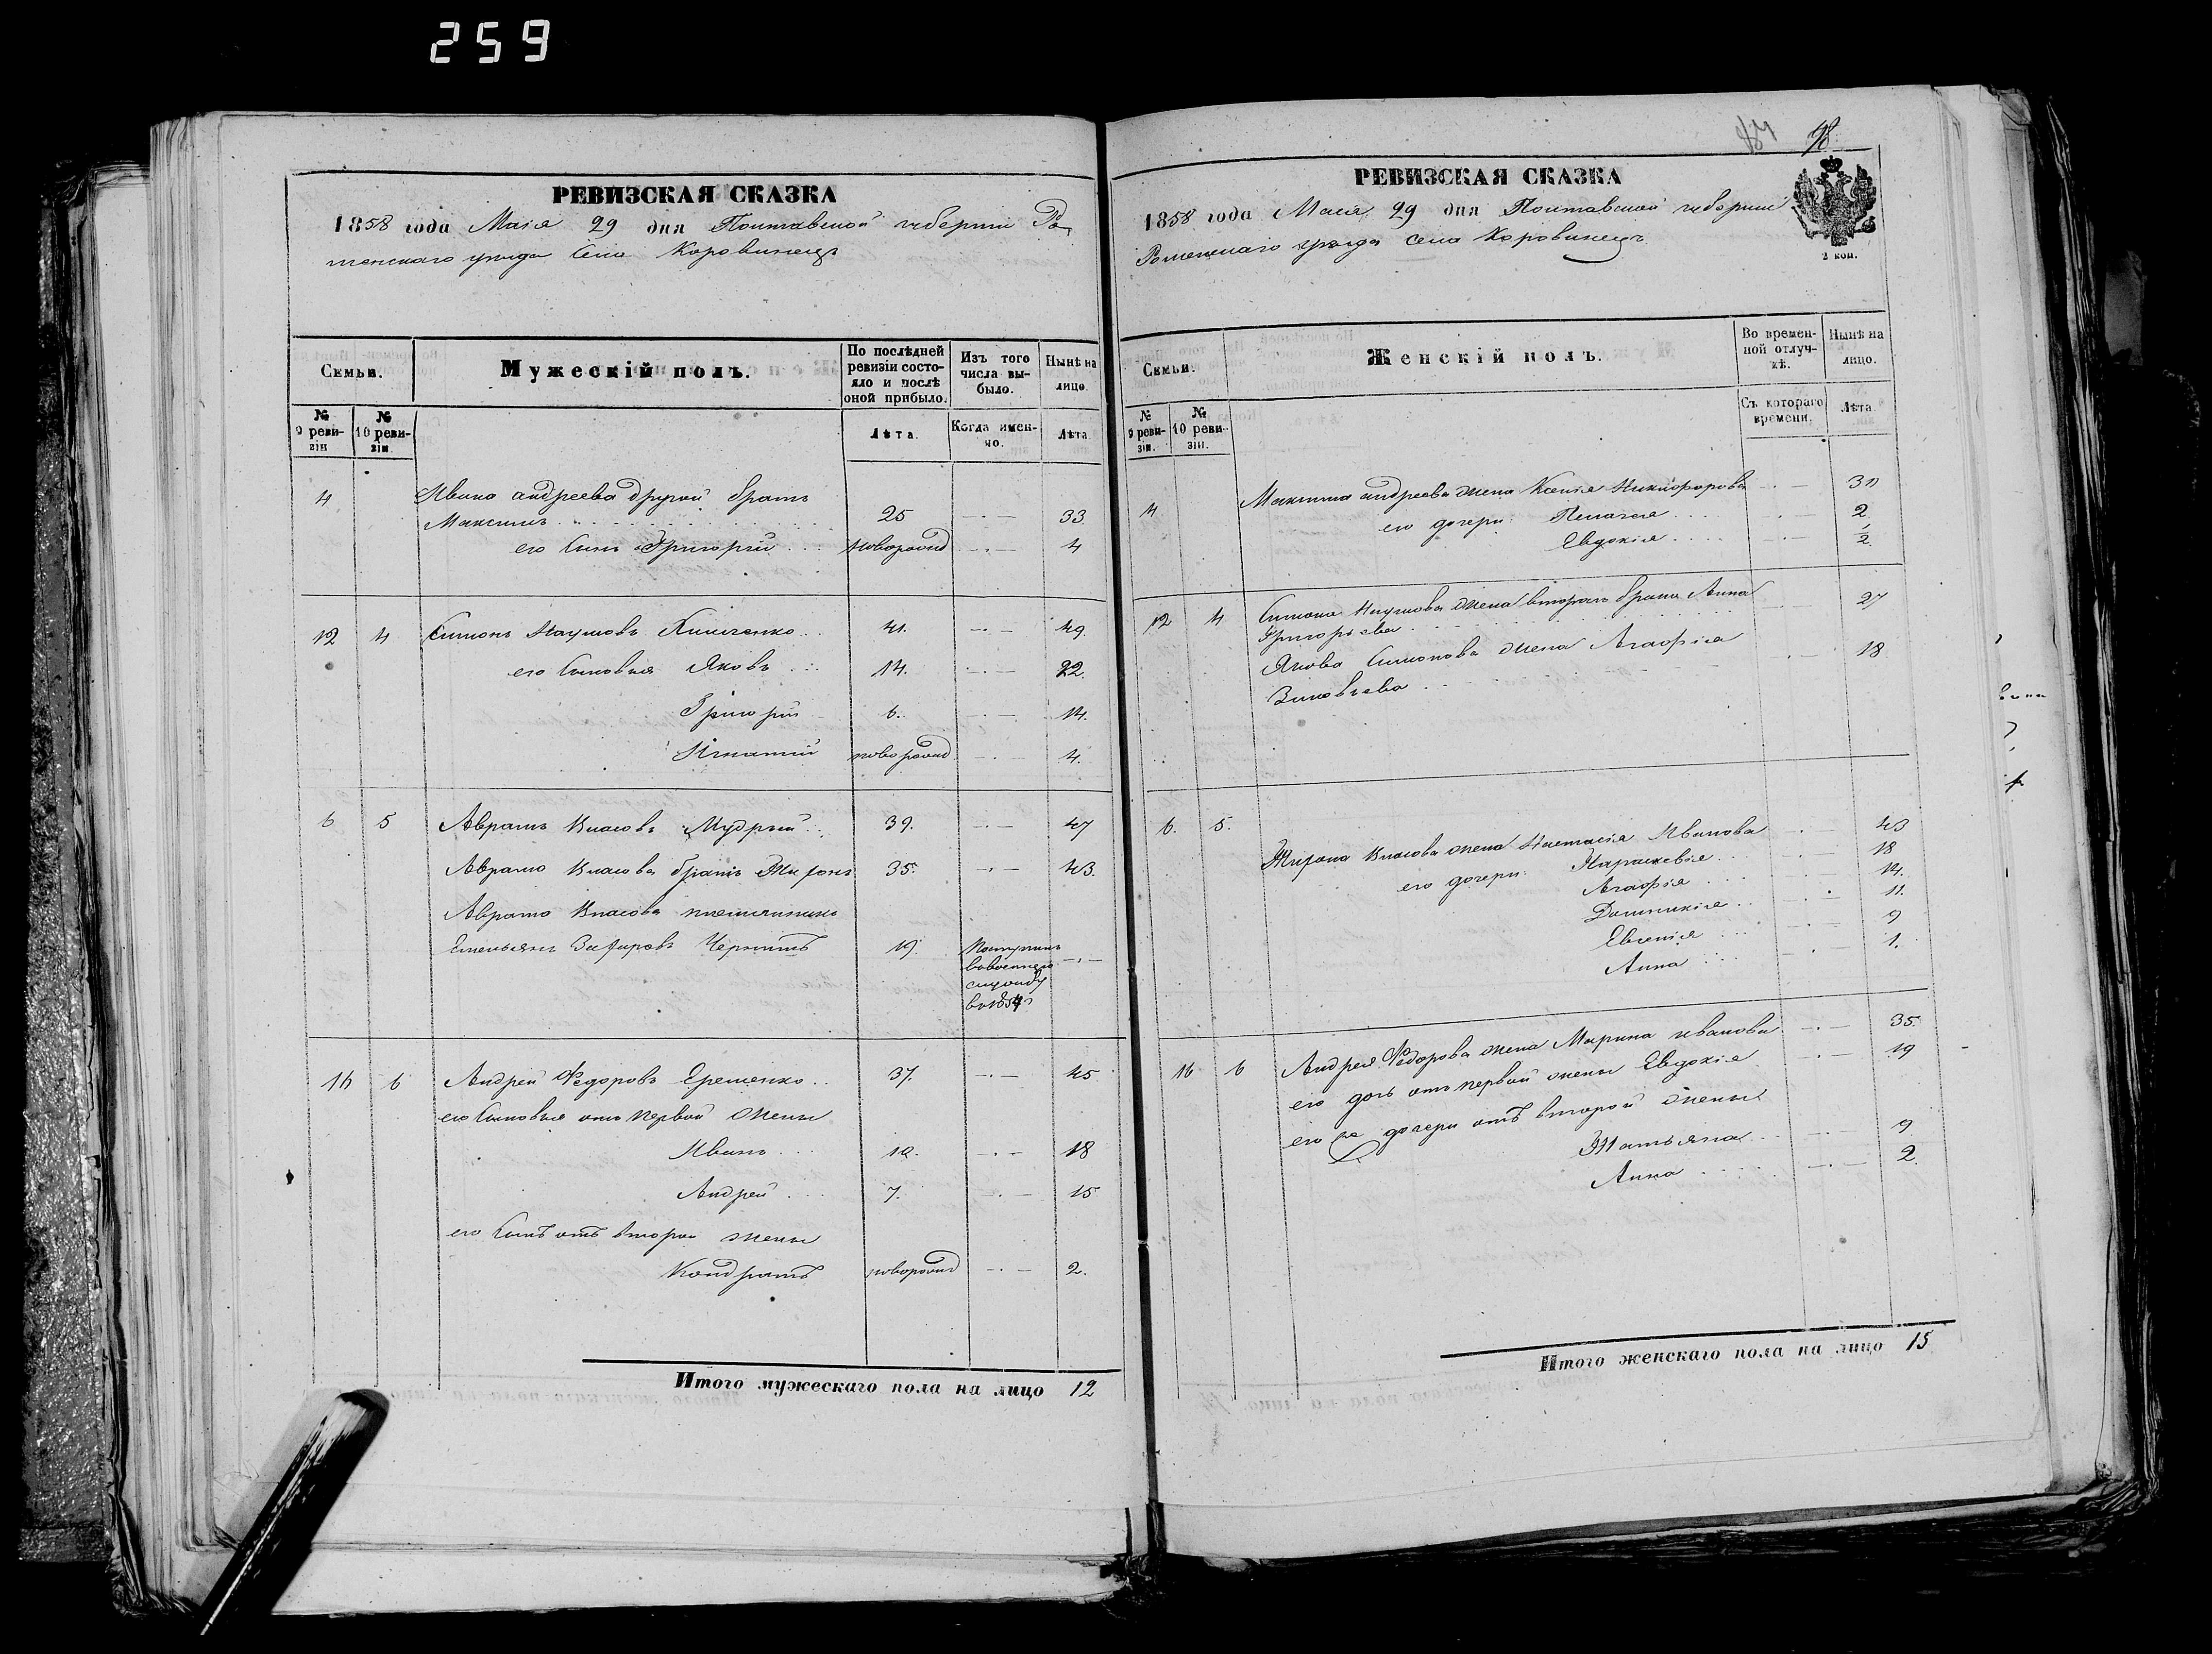 259
РЕВИЗСКАЯ СКАЗКА
1858 года Маія 29 дня Полтавской губерніи Ро
менскаго уѣзда Села Коровинецъ
Семьи. Мужескій полъ. По послѣдней ревизіи состояло и послѣ оной прибыло. Изъ того числа выбыло. Нынѣ на лицо.
№ 9 ревизіи № 10 ревизіи. Лѣта. Когда именно. Лѣта.
4 Ивана андреева другой братъ
Максимъ 25 33.
его Сынъ Григорій новорожд 4
12 4 Симонъ Наумовъ 41. 49.
его Сыновья Яковъ 14. 22.
Григорій 6. 14.
Игнатій новорожд 4.
6 5 Аврамъ Власовъ Мудрый 39. 47
Аврама Власова братъ Миронъ 35. 43.
Аврама Власова племянникъ
Емельянъ 19. Поступилъ
ввоенную
службу
въ 1854
16 6 Андрей Федоровъ Ерещенко 37. 45
его Сыновья отъ первой жены
Иванъ 10. 18
Андрей 7. 15
его Сынъ отъ второй жены
Кондратъ новорожд 2.
Итого мужескаго пола на лицо 12
48
РЕВИЗСКАЯ СКАЗКА
1858 года Маія 29 дня Полтавской губерніи
Роменскаго уѣзда Села Коровинецъ
2 коп.
Семьи. Женскій полъ. Во временной отлучкѣ. Нынѣ на лицо.
№ 9 ревизіи. № 10 ревизіи. Съ котораго времени. Лѣта.
4 Максима андреева жена Ксенія Никифорова 31
его дочери Пелагея 2
Евдокія 2
12 4 Симона Наумова жена втораго брака Анна 27
Григорьева
Якова Симонова жена Агафія 18
Зиновьева
6. 5. Мирона Власова жена Настасія Иванова 43
его дочери Параскевія 18
Агафія 14.
Домникія 11.
Евгенія 9
Анна 1.
16 6 Андрея Федорова жена Марина иванова 35.
его дочь отъ первой жены Евдокія 19
его дочери отъ второй жены
Татьяна 9
Анна 2.
Итого женскаго пола на лицо 15